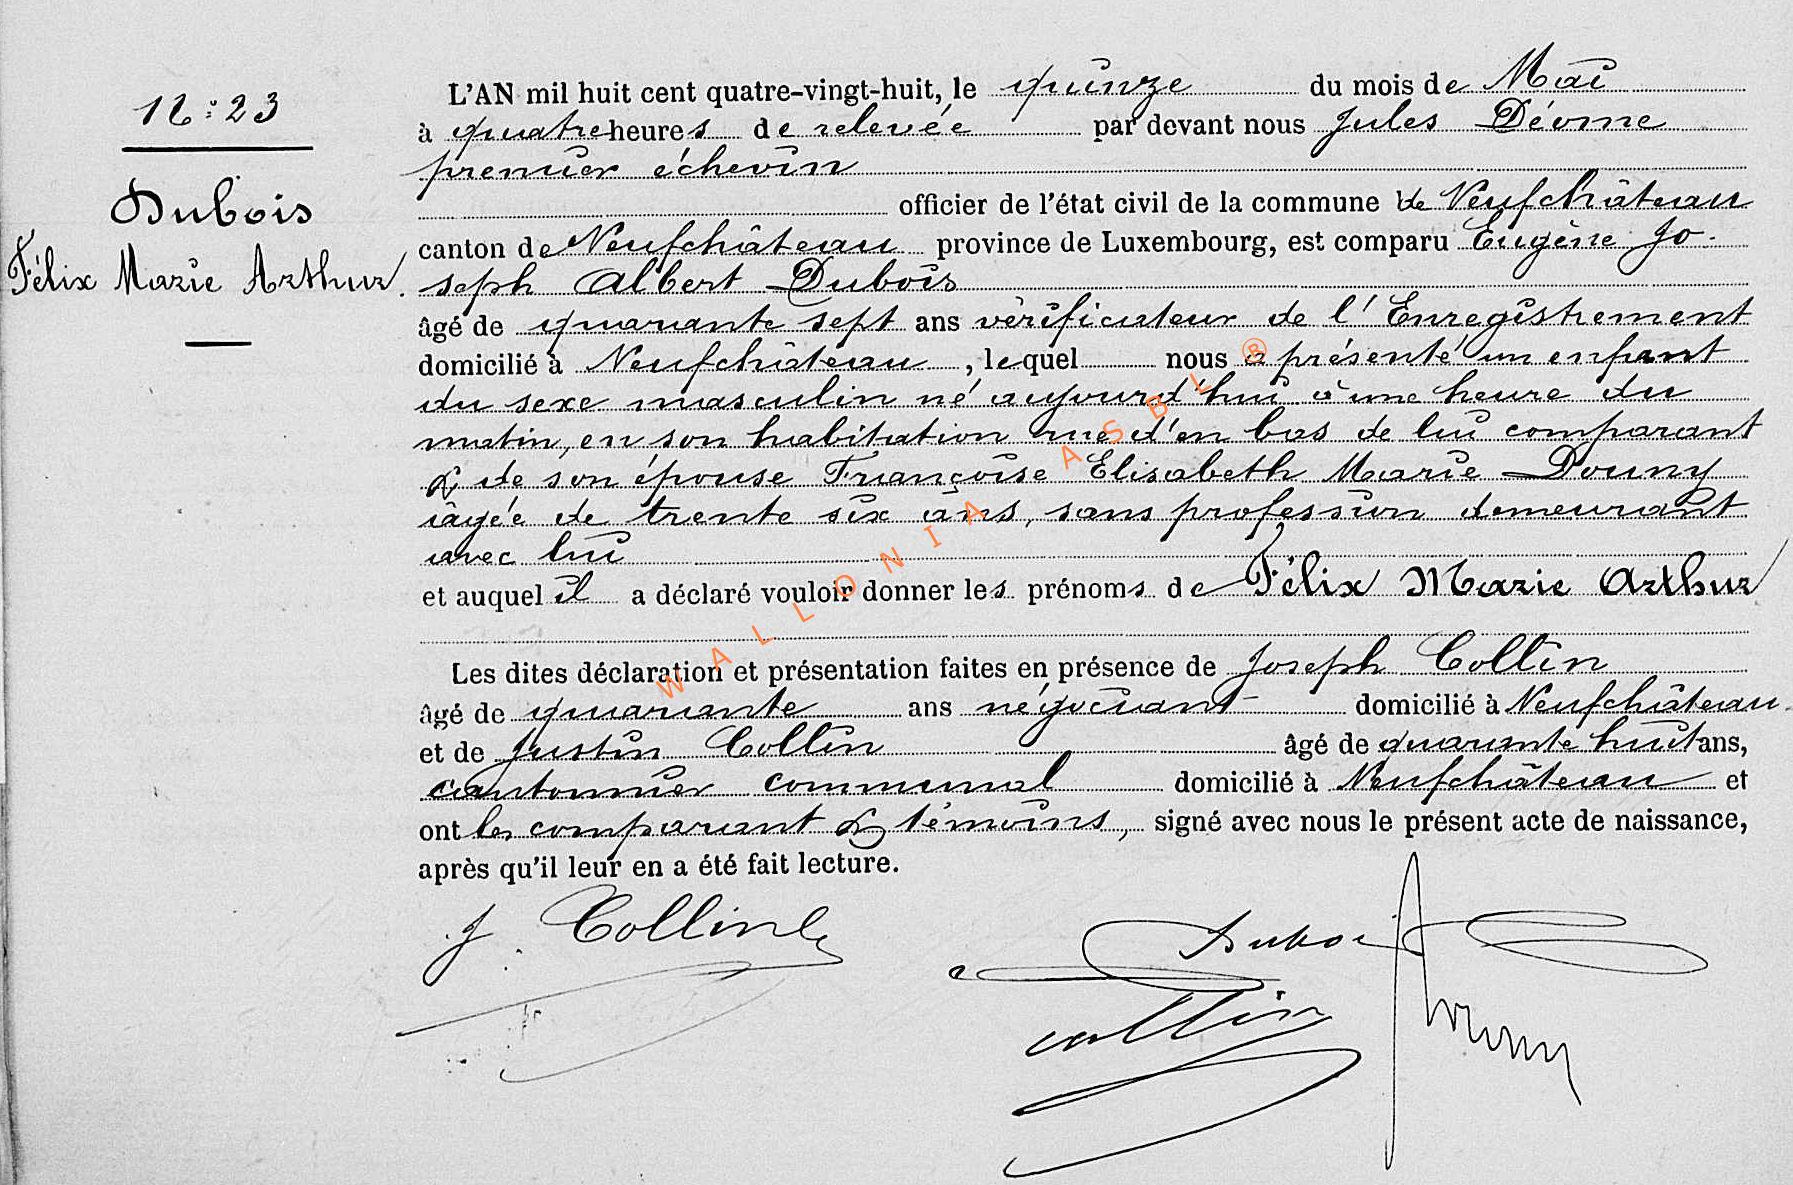 N.° 23
Dubois
Félix Marie Arthur.
L'AN mil huit cent quatre-vingt-huit, le quinze du mois de Mai
à quatre heures de relevée par devant nous Jules
premier échevin
officier de l'état civil de la commune de Neufchâteau
canton de Neufchâteau province de Luxembourg, est comparu Eugène Jo-
seph Albert Dubois
âgé de quarante sept ans vérificateur de l'Enregistrement
domicilié à Neufchâteau, lequel nous a présenté un enfant
du sexe masculin né aujourd'hui à une heure du
matin, en son habitation rue d'en bas de lui comparant
& de son épouse Françoise Elisabeth Marie Douny
âgée de trente six ans, sans profession demeurant
avec lui
et auquel il a déclaré vouloir donner les prénoms de Félix Marie Arthur
Les dites déclaration et présentation faites en présence de Joseph Collin
âgé de quarante ans négociant domicilié à Neufchâteau.
et de Justin Collin âgé de quarante huit ans,
cantonnier communal domicilié à Neufchâteau et
ont les comparant & témoins, signé avec nous le présent acte de naissance,
après qu'il leur en a été fait lecture.
J. Collin
Dubois
Collin
WALLONIA ASBL ®